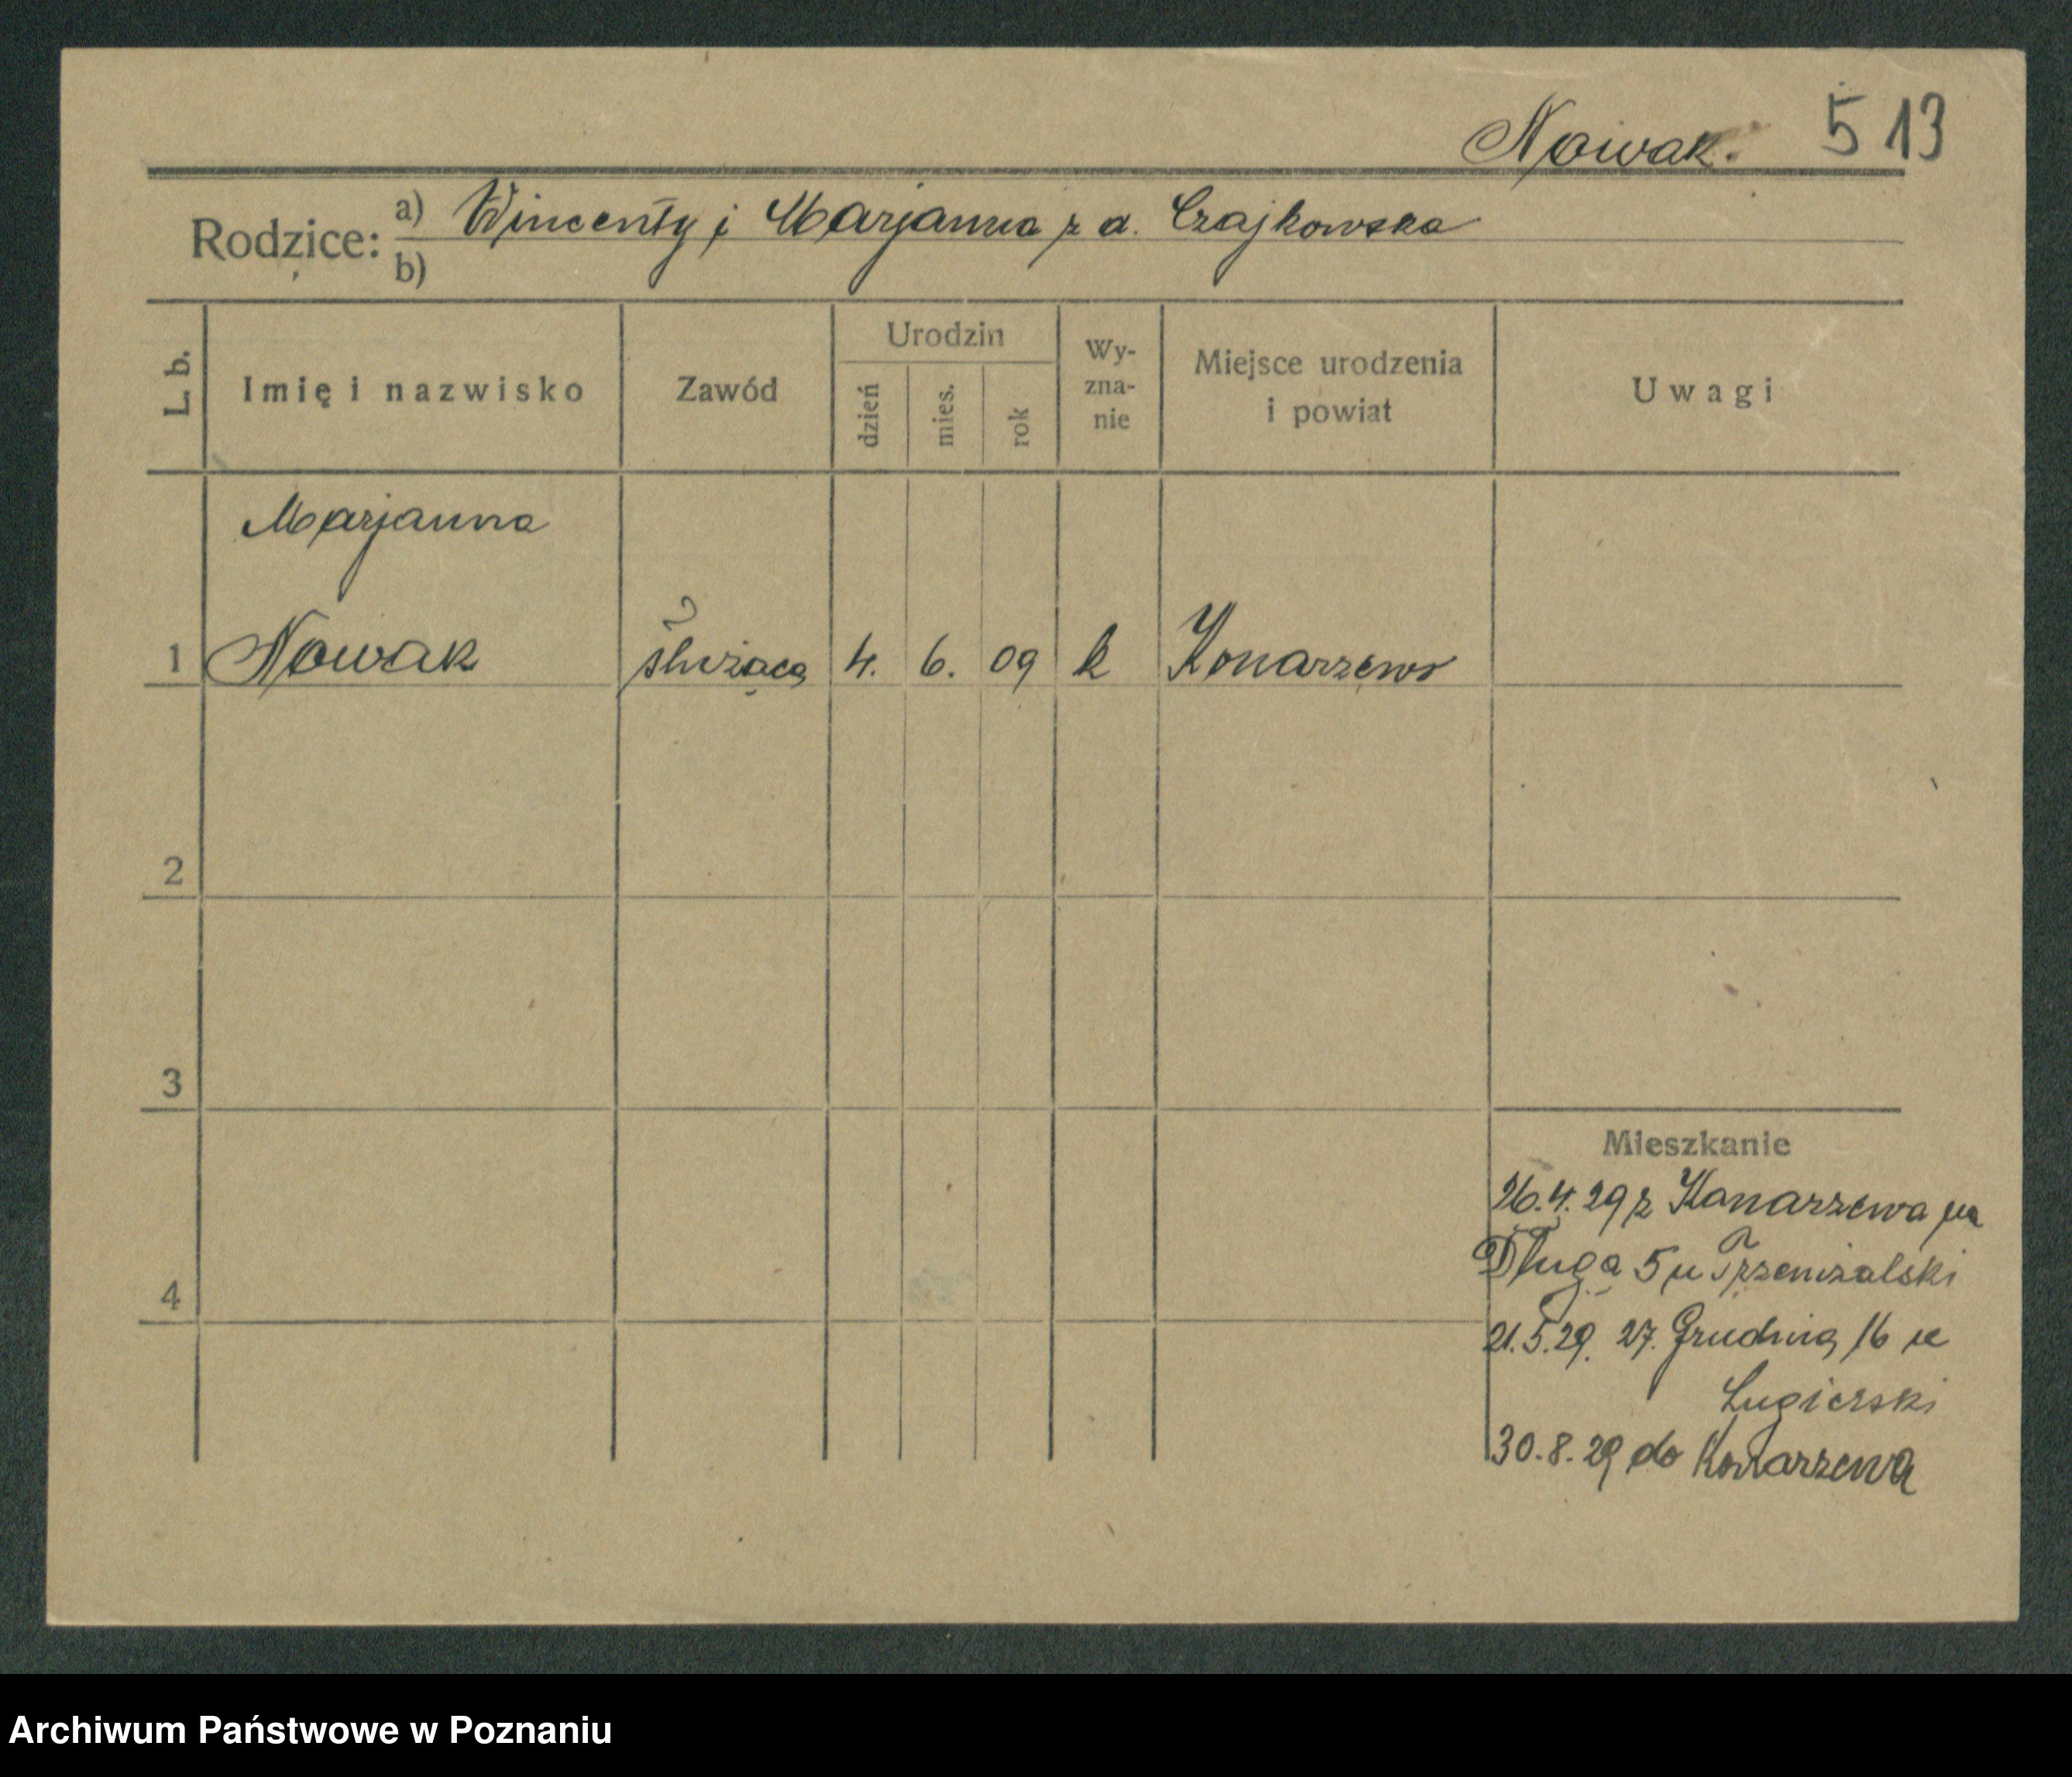 Nowak. 513
Rodzice: a) Wincenty i Marjanna z d. Czajkowska
b)
L. b. Imię i nazwisko Zawód Urodzin dzień mies. rok Wyznanie Miejsce urodzenia i powiat Uwagi
Marjanna
1 Nowak służąca 4. 6. 09 k Konarzewo
2
3
Mieszkanie
26.4.29 z Konarzewa na
Długa 5 u
4
21.5.29. 27. Grudnia 16 u
Lugierski
30.8.29 do Konarzewa
Archiwum Państwowe w Poznaniu